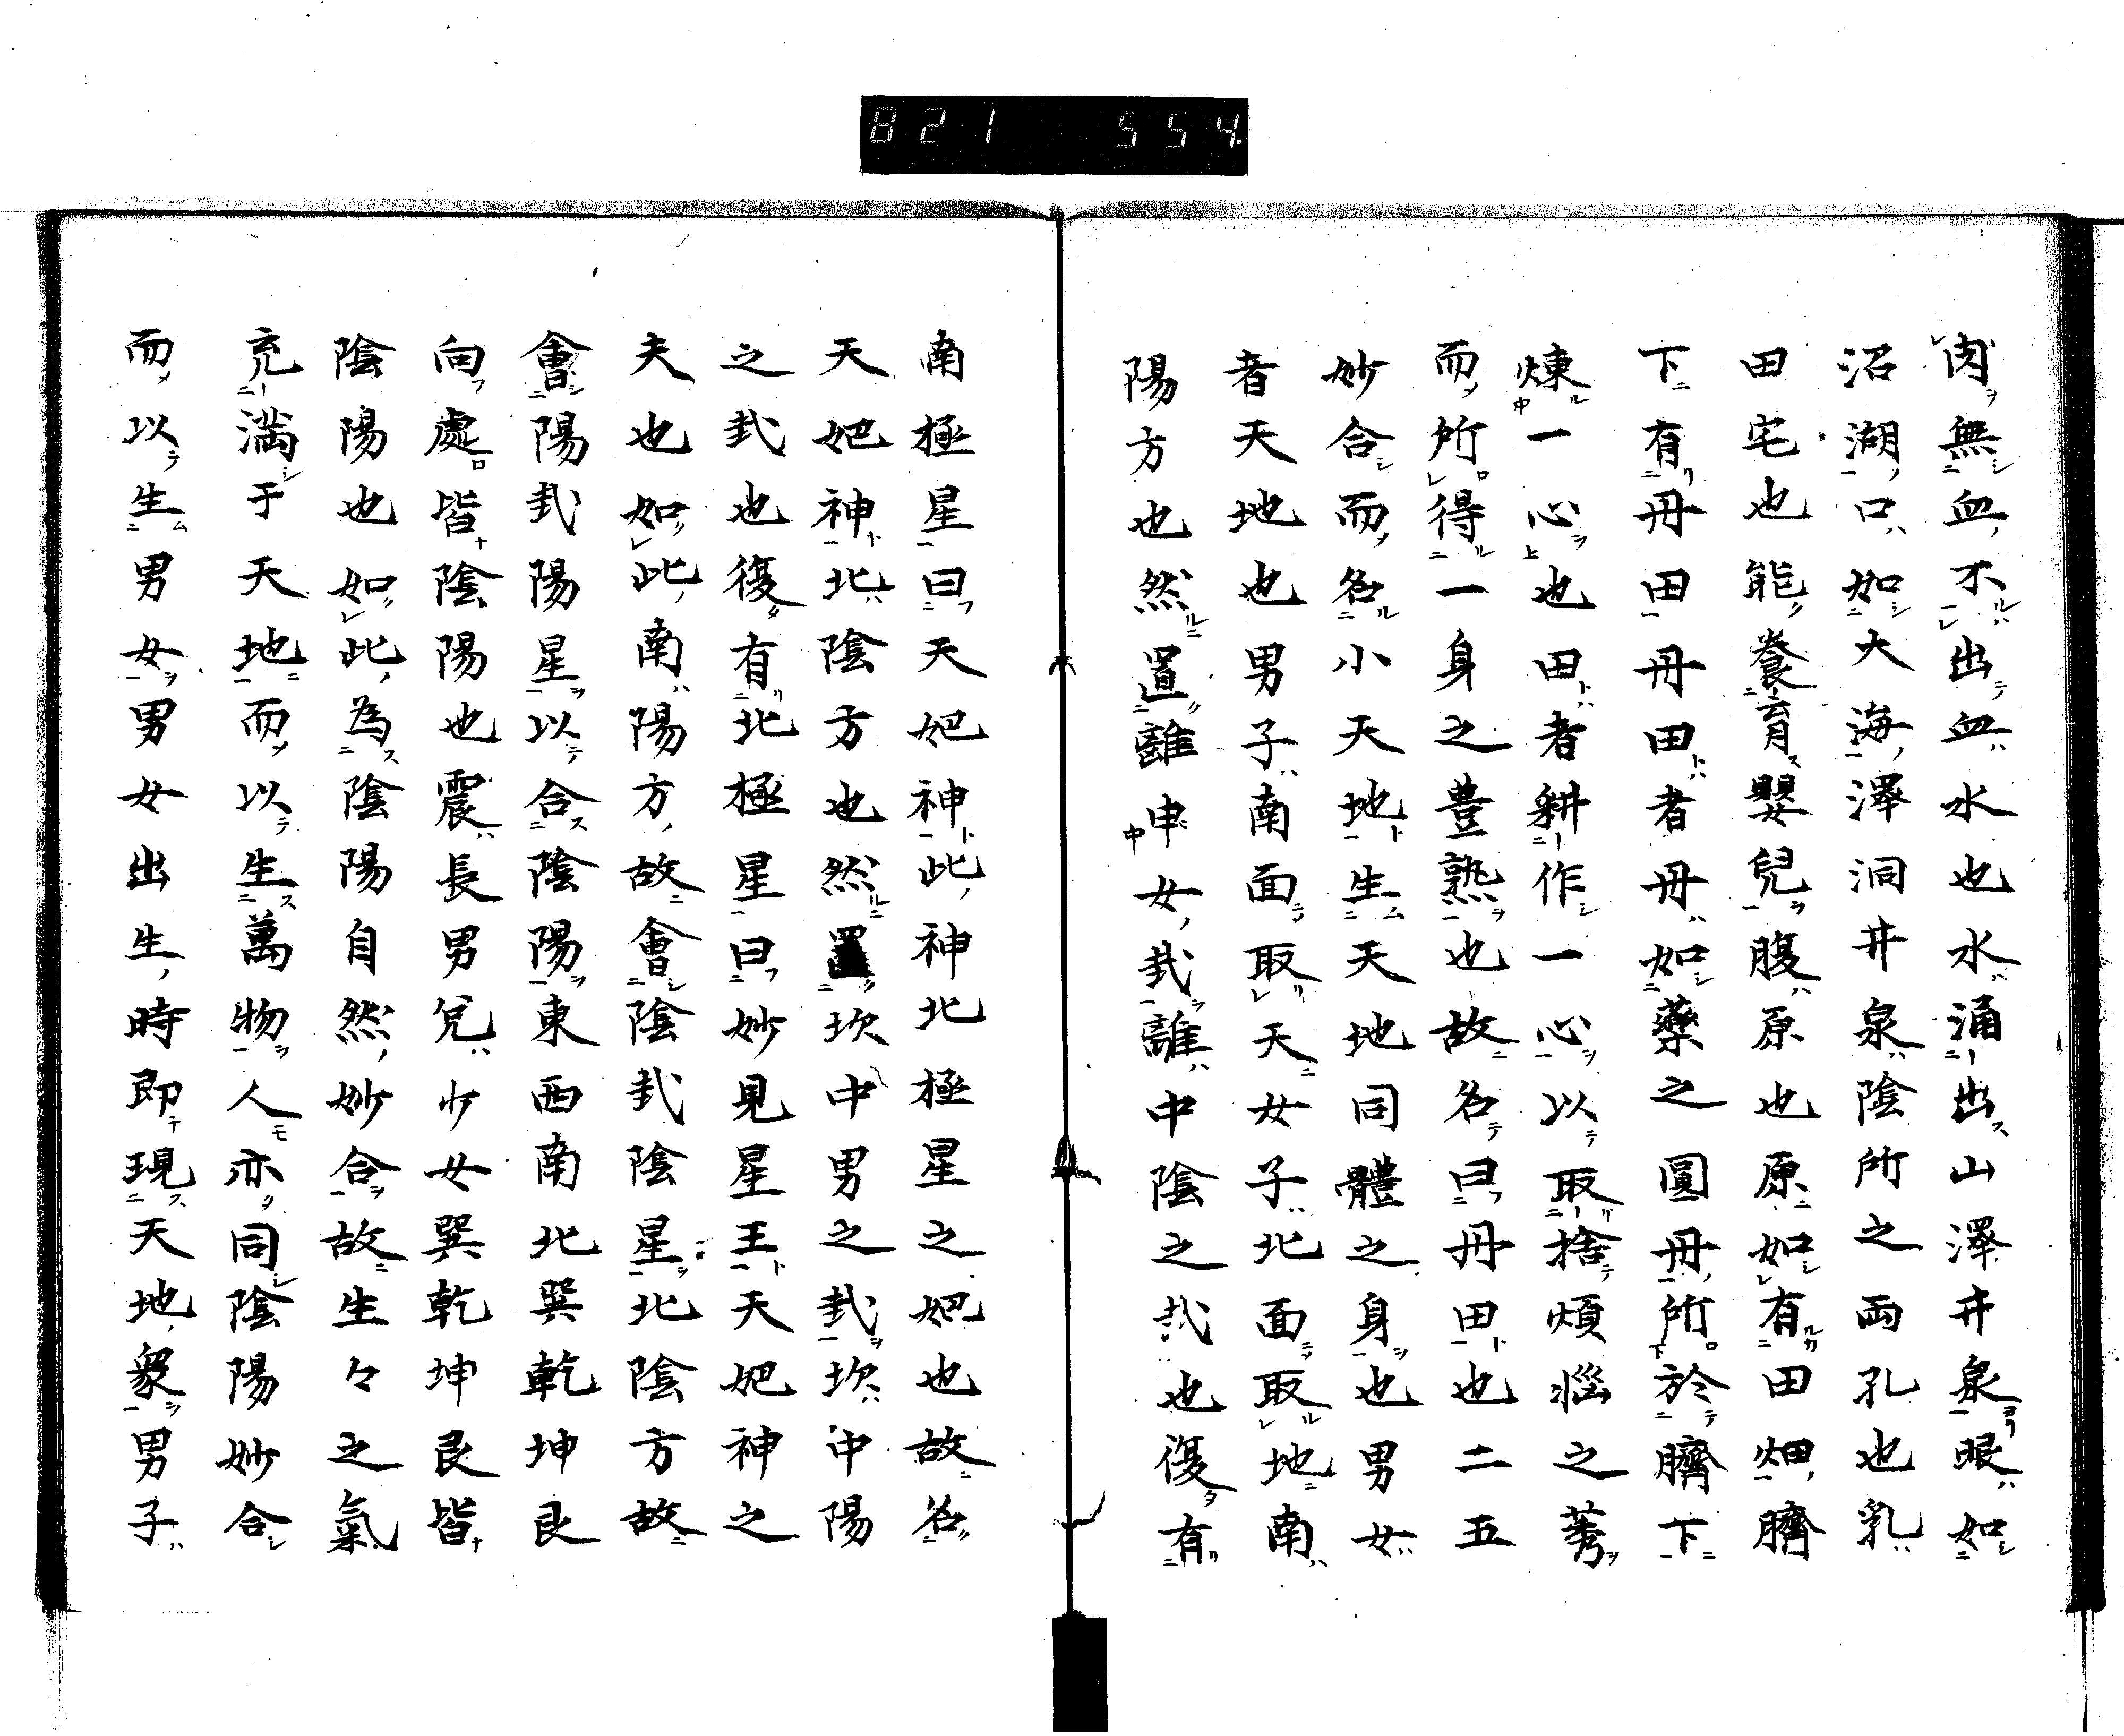 821 554.
肉無血不出血水也水涌出山澤井泉眼如
沼湖口如大海澤洞井泉陰所之両孔也乳
田宅也能養育嬰兒腹原也原如有田畑臍
下有丹田丹田者丹如藥之圓丹所於臍下
煉一心也田者耕作一心以取捨煩惱之莠
而所得一身之豊熟也故名曰丹田也二五
妙合而名小天地生天地同體之身也男女
者天地也男子南面取天女子北面取地南
陽方也然置離中女卦離中陰之卦也復有
南極星曰天妃神此神北極星之妃也故名
天妃神北陰方也然置坎中男之卦坎中陽
之卦也復有北極星曰妙見星王天妃神之
夫也如此南陽方故會陰卦陰星北陰方故
會陽卦陽星以合陰陽東西南北巽乾坤艮
向處皆陰陽也震長男兌少女巽乾坤艮皆
陰陽也如此為陰陽自然妙合故生々之氣
充満于天地而以生萬物人亦同陰陽妙合
而以生男女男女出生時即現天地象男子